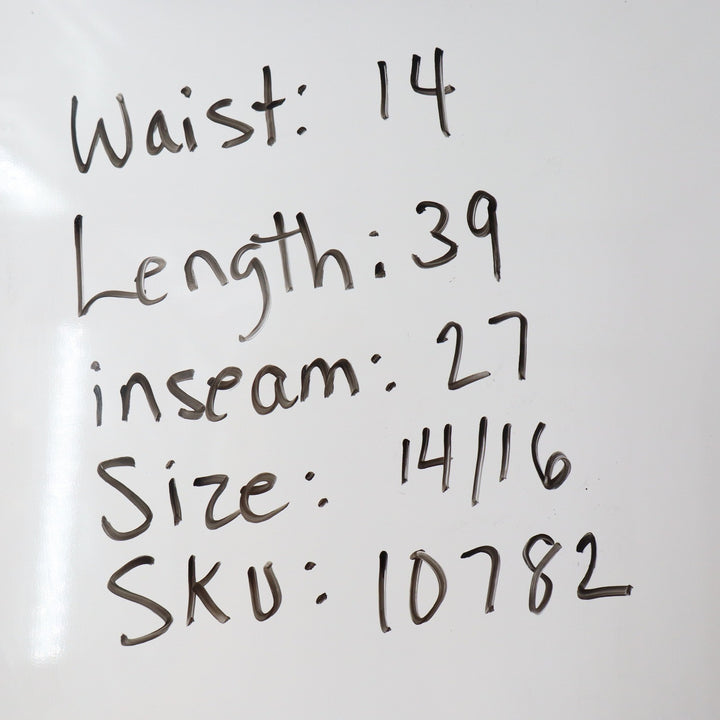 Waist: 14
Length: 39
inseam: 27
Size: 14/16
SKU: 10782